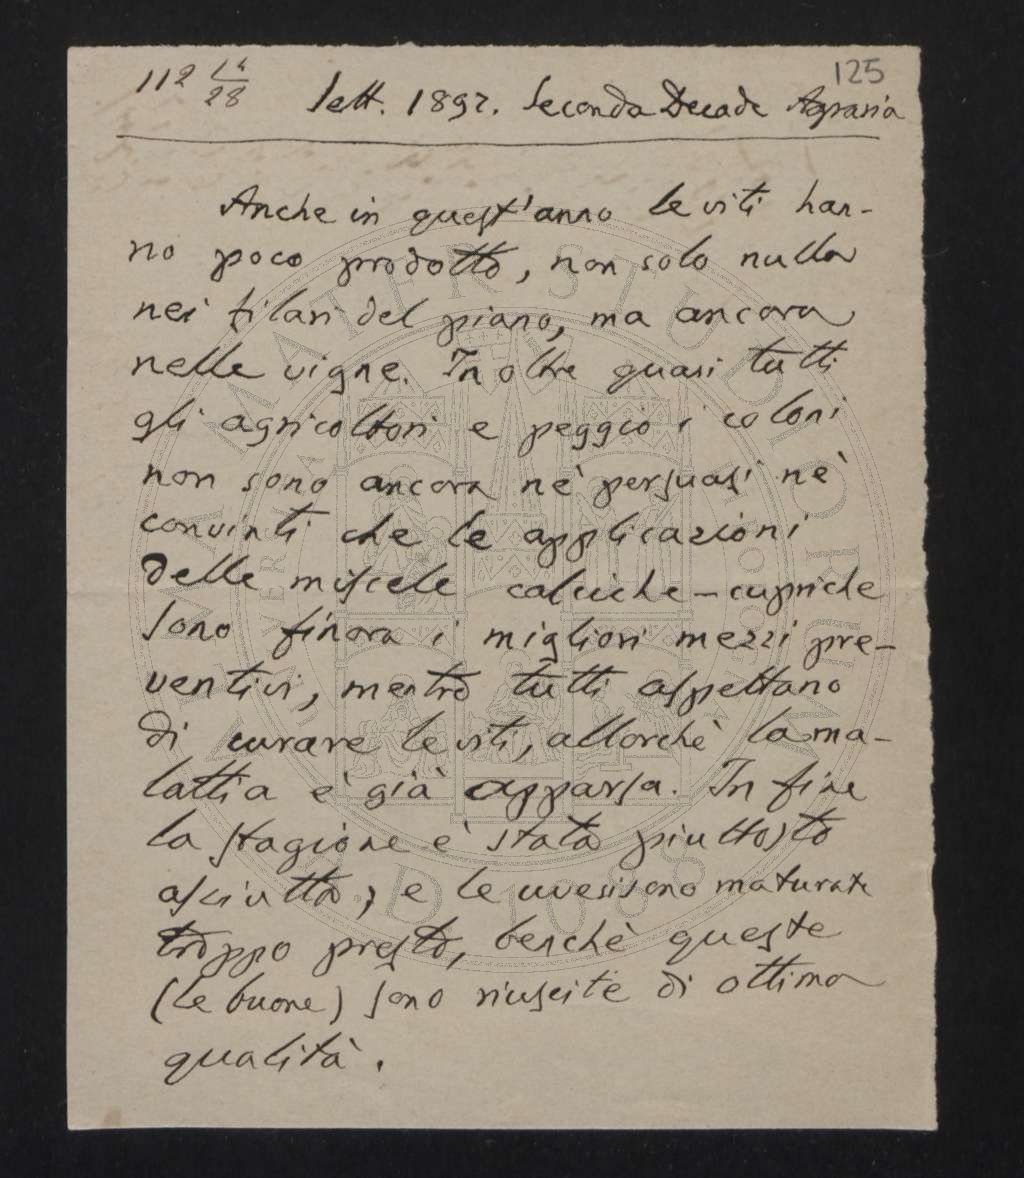 125
112 La/28 Sett. 1897. Seconda Decade Agraria
Anche in quest'anno le viti han-
no poco prodotto, non solo nulla
nei filari del piano, ma ancora
nelle vigne. In oltre quasi tutti
gli agricoltori e peggio i coloni
non sono ancora nè persuasi nè
convinti che le applicazioni
delle miscele calciche-cupriche
sono finora i migliori mezzi pre-
ventivi, mentre tutti aspettano
di curare le viti, allorchè la ma-
lattia è già apparsa. In fine
la stagione è stata piuttosto
asciutta, e le uve si sono maturate
troppo presto, benchè queste
(le buone) sono riuscite di ottima
qualità.
ALMA MATER STUDIORUM
A.D. 1088